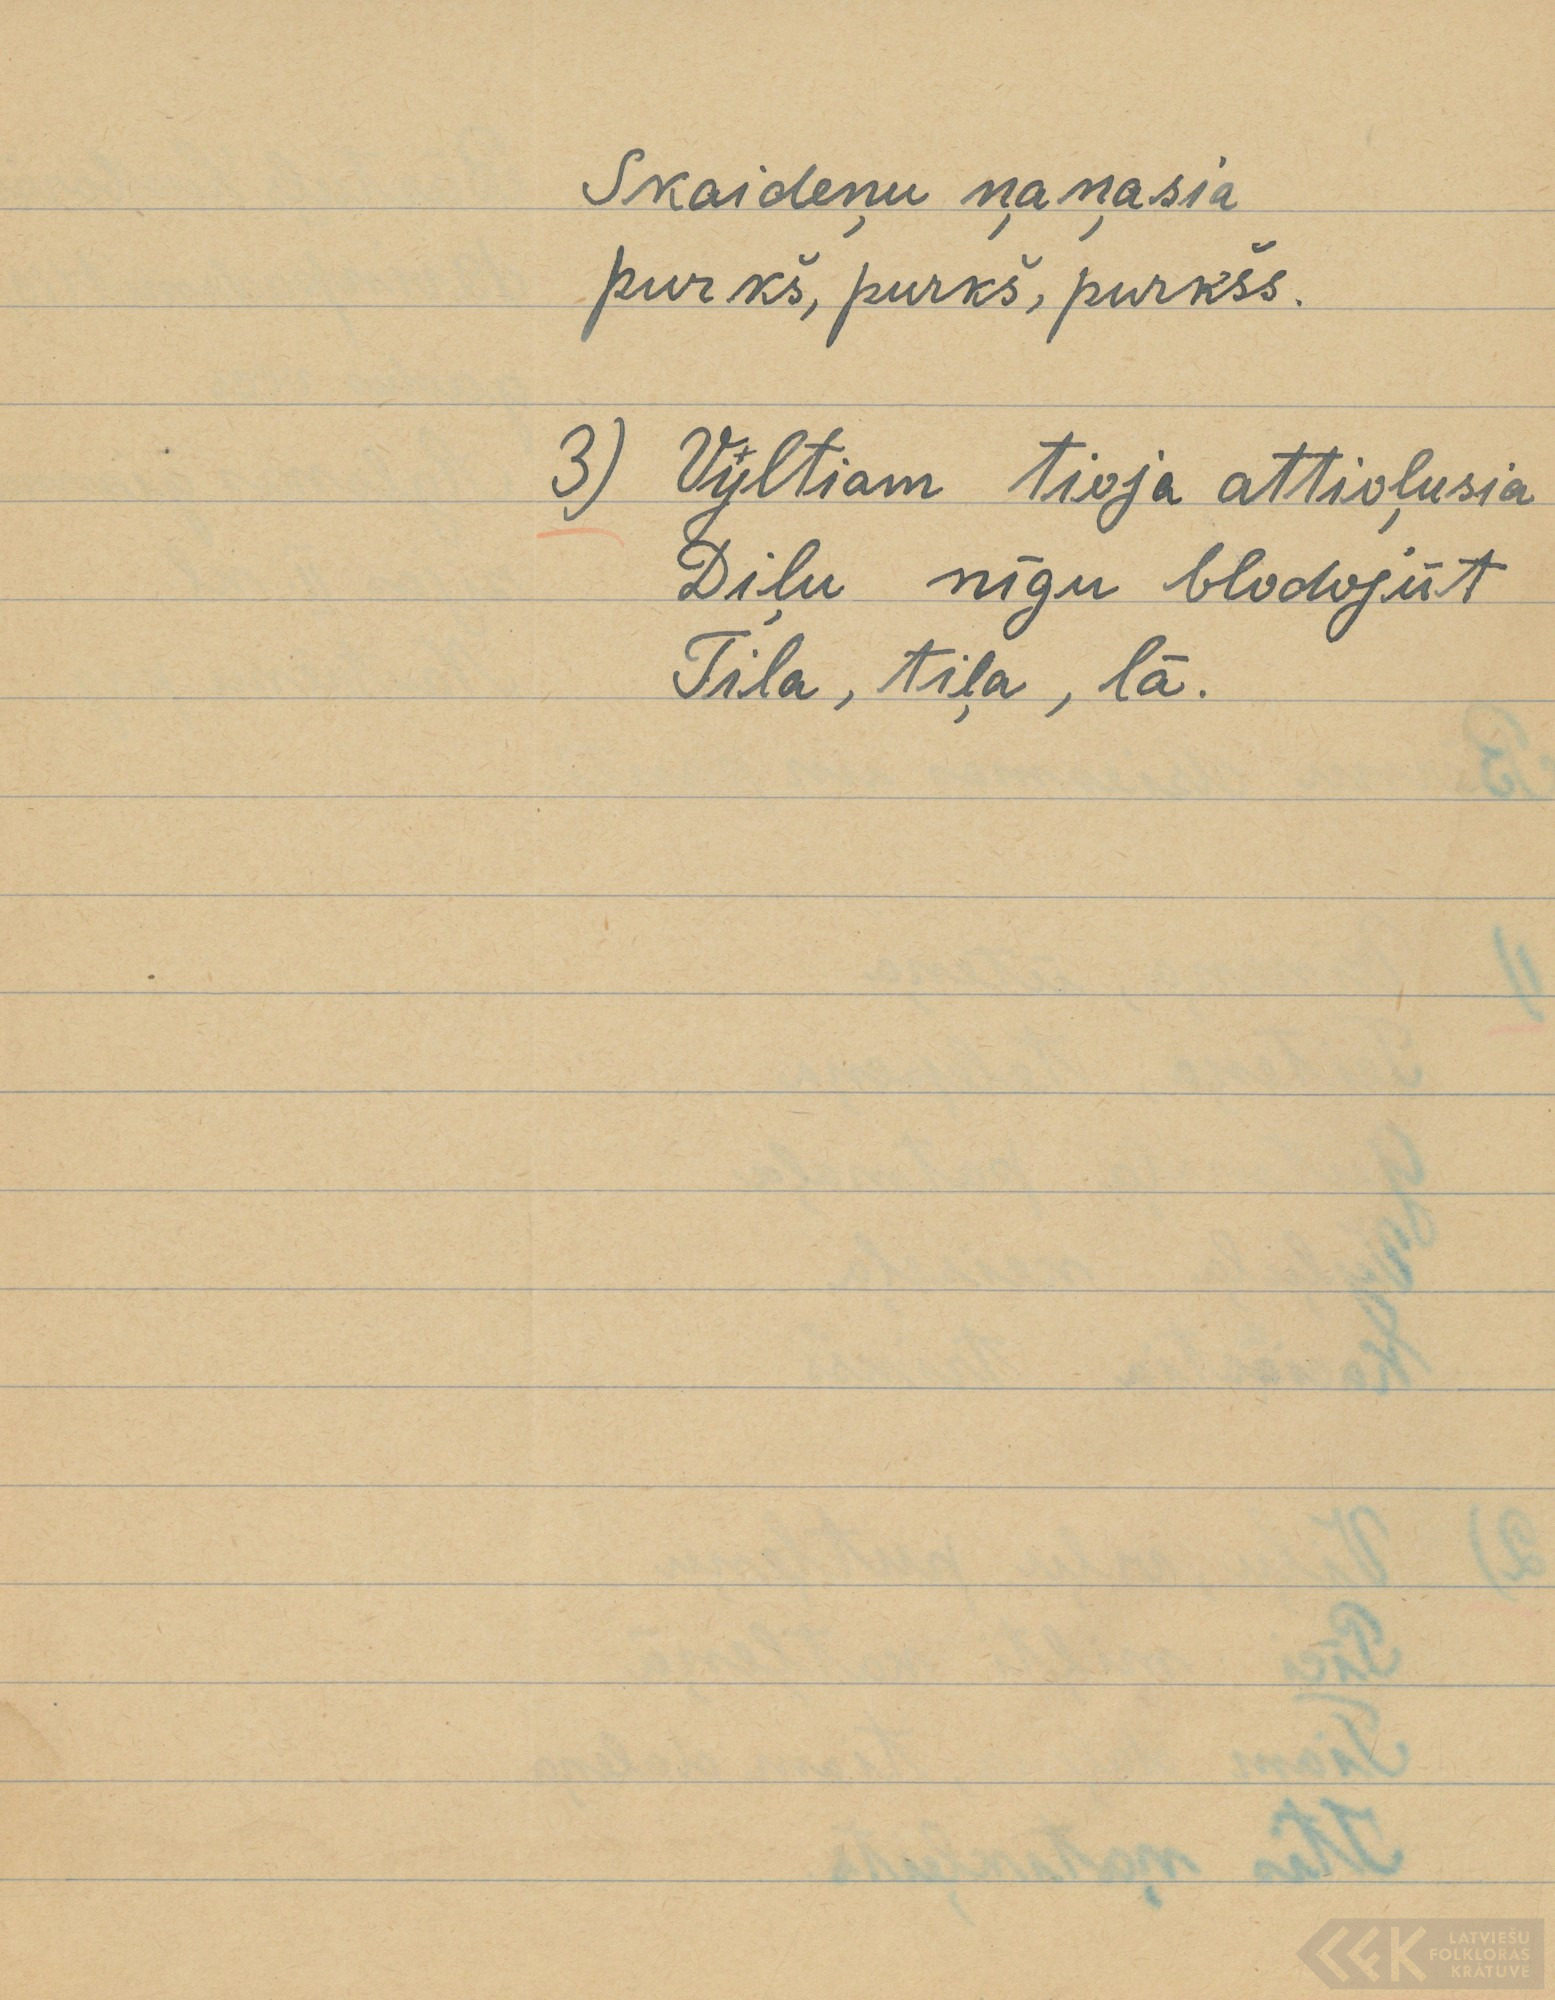 Skaideņu ņaņasia
purkš, purkš, purkšs.
3) Vyltiam tioja attioļusia
Diļu nīgu blodojūt
Tila, tiļa, lā.
LATVIEŠU
FOLKLORAS
KRĀTUVE